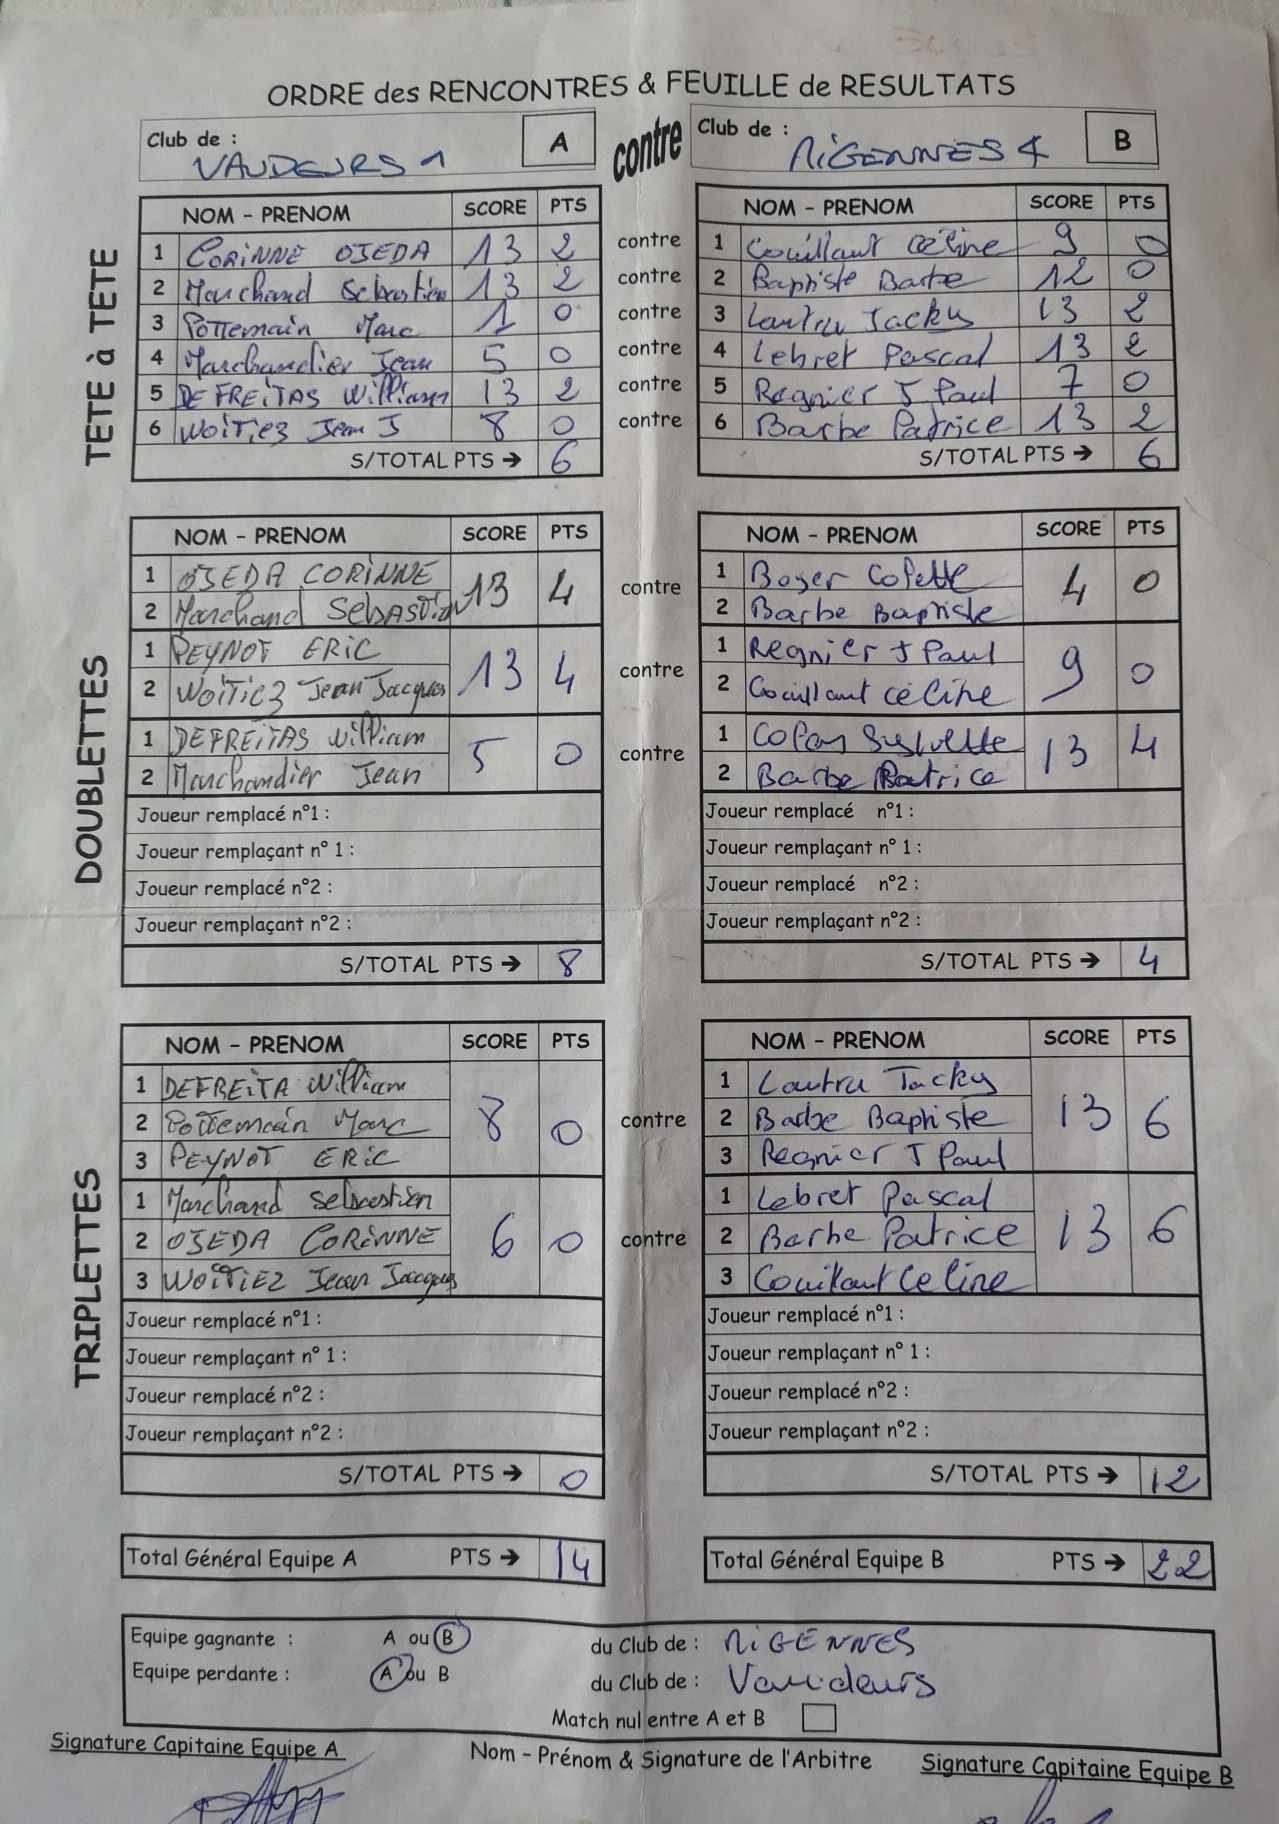 ORDRE des RENCONTRES & FEUILLE de RESULTATS
Club de : VAUDEURS 1 A contre Club de : MIGENNES 4 B
TETE à TETE
NOM - PRENOM SCORE PTS NOM - PRENOM SCORE PTS
1 CORINNE OJEDA 13 2 contre 1 Couillaut Céline 9 0
2 Marchand Sebastien 13 2 contre 2 Baptiste Barbe 12 0
3 Pottemain Marc 1 0 contre 3 Lautru Jacky 13 2
4 Marchandier Jean 5 0 contre 4 Lebret Pascal 13 2
5 DEFREITAS William 13 2 contre 5 Regnier J Paul 7 0
6 WOITIEZ Jean J 8 0 contre 6 Barbe Patrice 13 2
S/TOTAL PTS → 6 S/TOTAL PTS → 6
DOUBLETTES
NOM - PRENOM SCORE PTS NOM - PRENOM SCORE PTS
1 OJEDA CORINNE 13 4 contre 1 Boyer Colette 4 0
2 Marchand SEbASTIEN 2 Barbe Baptiste
1 PEYNOT ERIC 13 4 contre 1 Regnier J Paul 9 0
2 WOITIEZ Jean Jacques 2 Couillaut Céline
1 DEFREITAS William 5 0 contre 1 Colas Sylvette 13 4
2 Marchandier Jean 2 Barbe Patrice
Joueur remplacé n°1 : Joueur remplacé n°1 :
Joueur remplaçant n° 1 : Joueur remplaçant n° 1 :
Joueur remplacé n°2 : Joueur remplacé n°2 :
Joueur remplaçant n°2 : Joueur remplaçant n°2 :
S/TOTAL PTS → 8 S/TOTAL PTS → 4
TRIPLETTES
NOM - PRENOM SCORE PTS NOM - PRENOM SCORE PTS
1 DEFREITA William 8 0 contre 1 Lautru Jacky 13 6
2 Pottemain Marc 2 Barbe Baptiste
3 PEYNOT ERIC 3 Regnier J Paul
1 Marchand Sebastien 6 0 contre 1 Lebret Pascal 13 6
2 OJEDA CORINNE 2 Barbe Patrice
3 WOITIEZ Jean Jacques 3 Couillaut Celine
Joueur remplacé n°1 : Joueur remplacé n°1 :
Joueur remplaçant n° 1 : Joueur remplaçant n° 1 :
Joueur remplacé n°2 : Joueur remplacé n°2 :
Joueur remplaçant n°2 : Joueur remplaçant n°2 :
S/TOTAL PTS → 0 S/TOTAL PTS → 12
Total Général Equipe A PTS → 14 Total Général Equipe B PTS → 22
Equipe gagnante : A ou B du Club de : MIGENNES
Equipe perdante : A ou B du Club de : Vaudeurs
Match nul entre A et B
Signature Capitaine Equipe A Nom - Prénom & Signature de l'Arbitre Signature Capitaine Equipe B